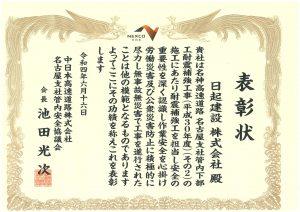 NEXCO
表彰状
日起建設 株式会社 殿
貴社は名神高速道路 名古屋支社管内下部
工耐震補強工事(平成30年度)(その2)の
施工にあたり耐震補強工を担当し安全の
重要性を深く認識し作業安全を心掛け
労働災害及び公衆災害防止に積極的に
尽力し無事故無災害で工事を遂行された
ことは他の模範となるものであります
よってここにその功績を称えこれを表彰
します
令和四年六月十六日
中日本高速道路株式会社
名古屋支社管内安全協議会
会長 池田光次